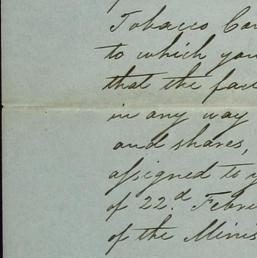 Tobacco Co
to which you
that the fac
in any way
and shares,
assigned to y
of 22d. Febru
of the Minis